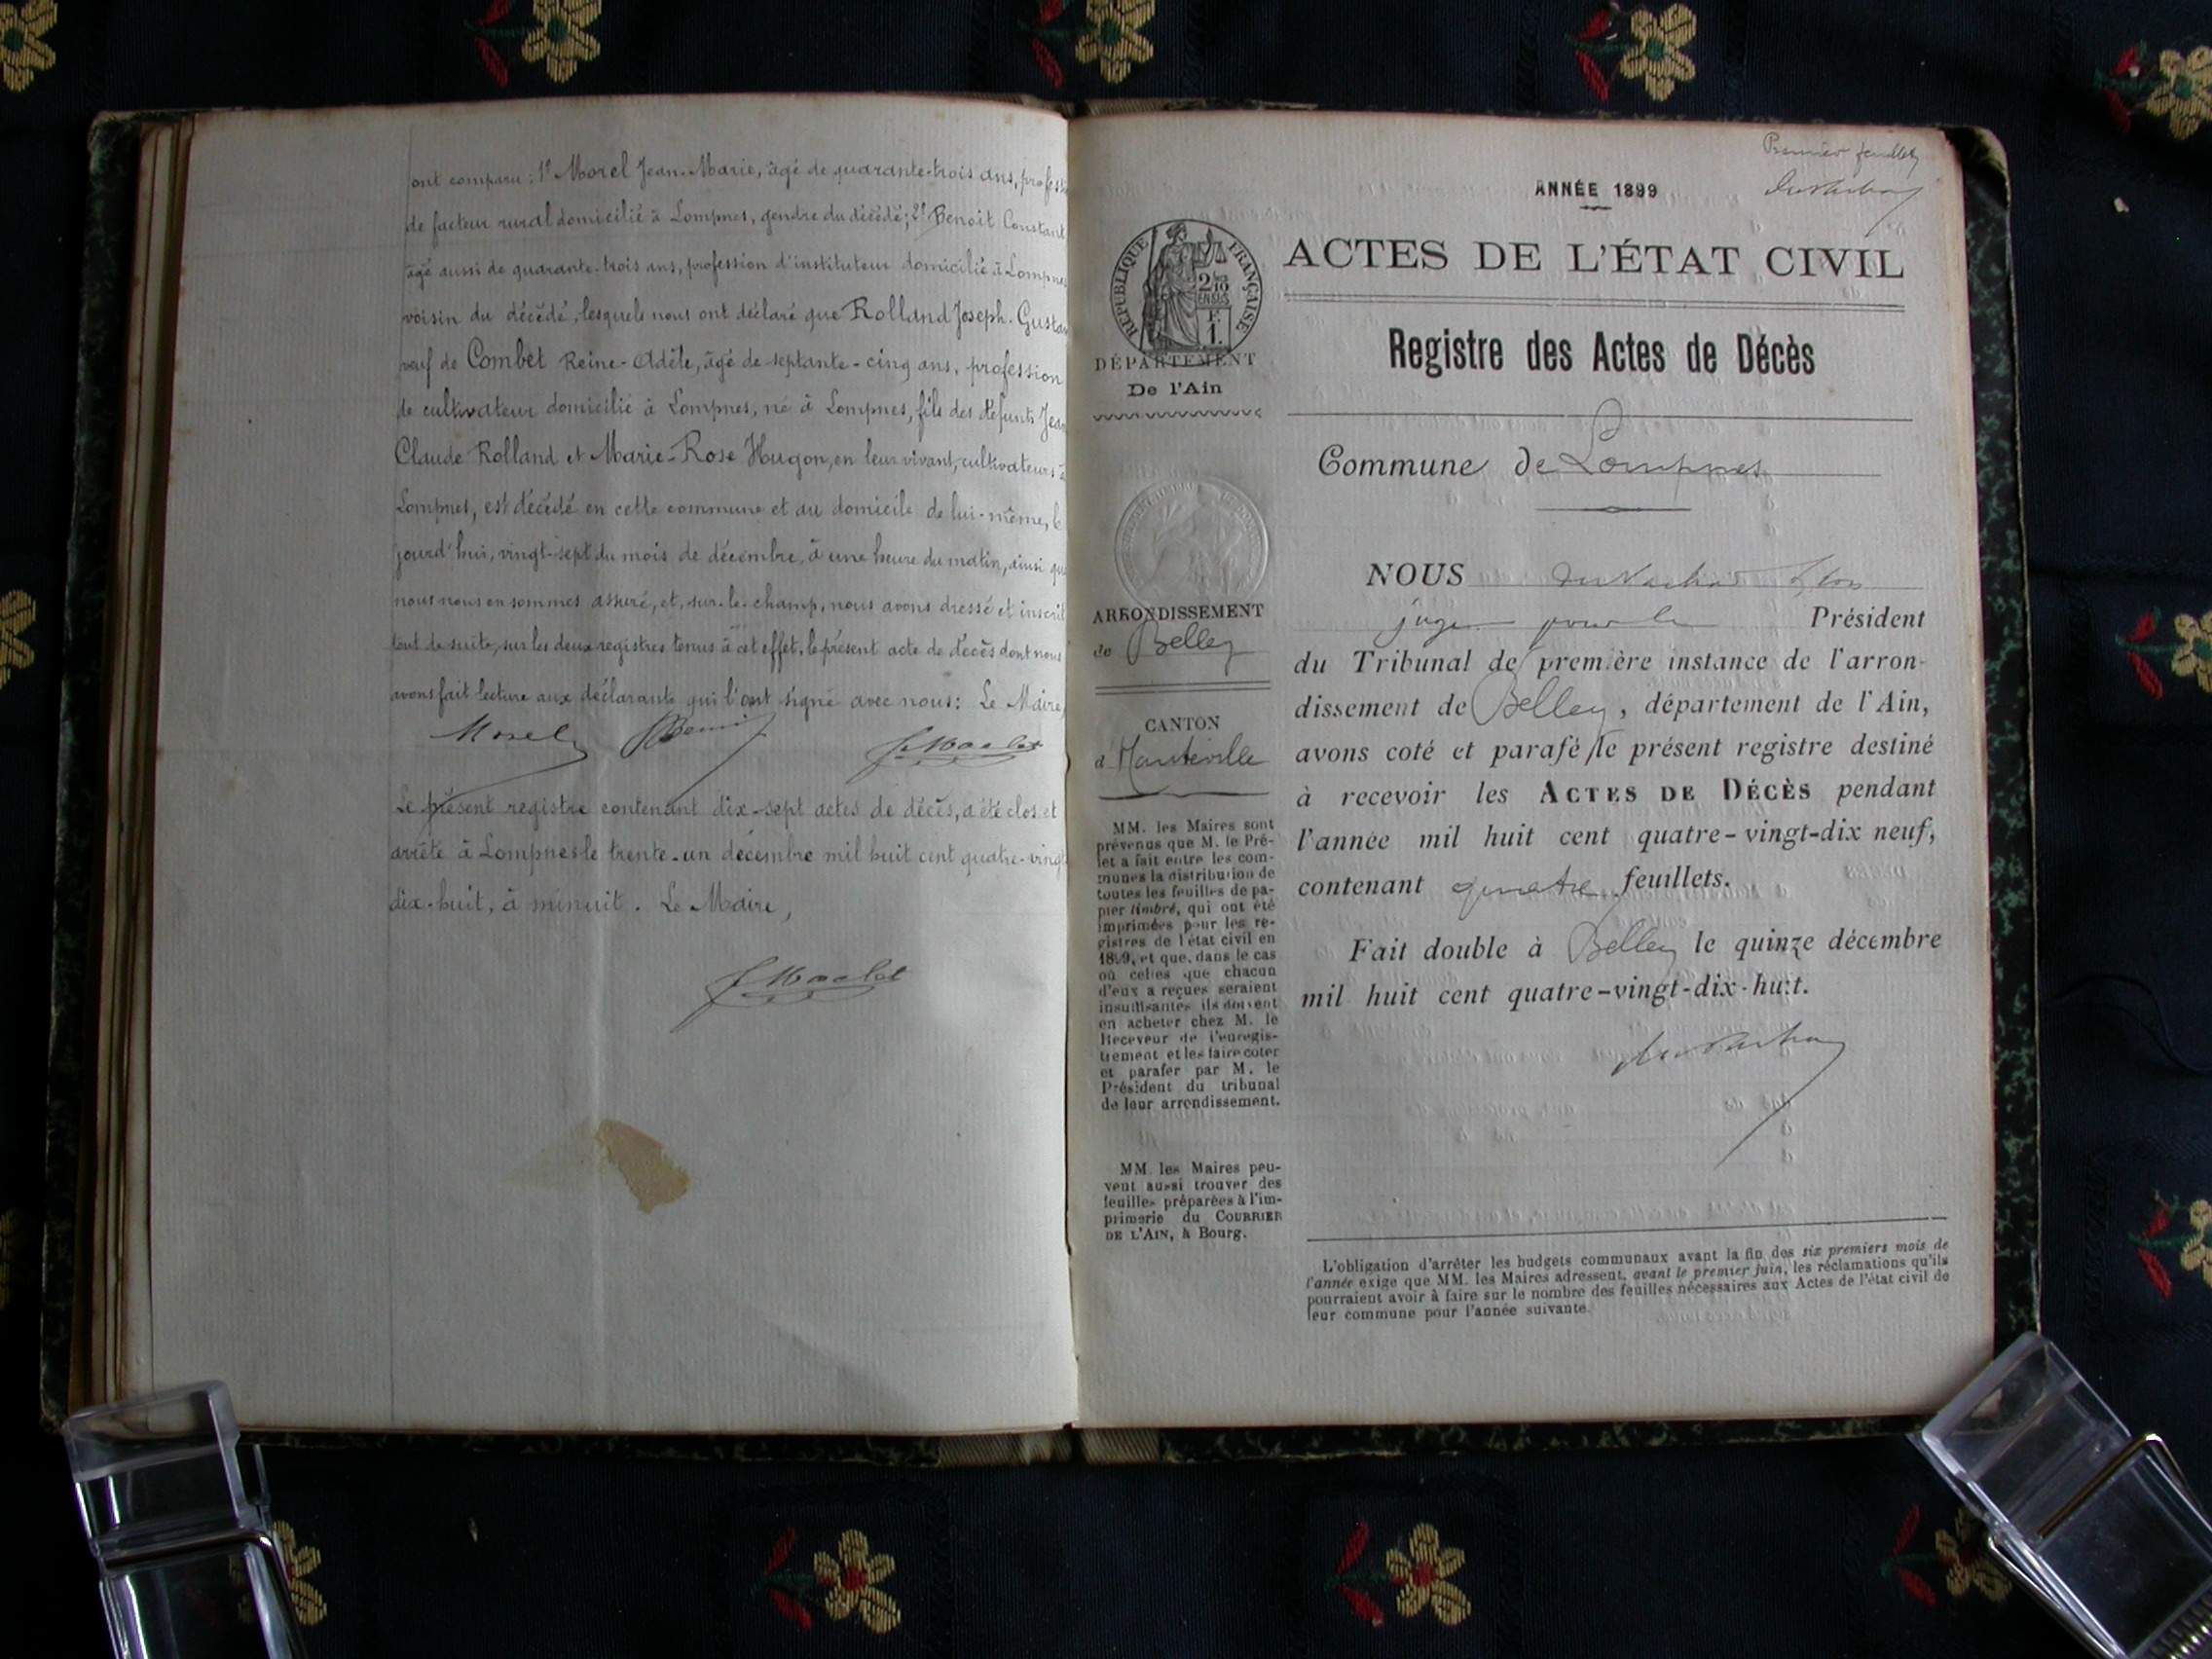 ont comparu : 1° Morel Jean-Marie, âgé de quarante-trois ans, profess
de facteur rural domicilié à Lompnes, gendre du décédé ; 2° Benoît Constant
âgé aussi de quarante-trois ans, profession d'instituteur domicilié à Lompnes
voisin du décédé, lesquels nous ont déclaré que Rolland Joseph-Gustav
veuf de Combet Reine-Adèle, âgé de septante-cinq ans, profession
de cultivateur domicilié à Lompnes, né à Lompnes, fils des défunts Jean
Claude Rolland et Marie-Rose Hugon, en leur vivant, cultivateurs à
Lompnes, est décédé en cette commune et au domicile de lui-même, le
jourd'hui, vingt-sept du mois de décembre, à une heure du matin, ainsi que
nous nous en sommes assuré, et, sur-le-champ, nous avons dressé et inscrit
tout de suite, sur les deux registres tenus à cet effet, le présent acte de décès dont nous
avons fait lecture aux déclarants qui l'ont signé avec nous : Le Maire,
Morel Benoit
Le présent registre contenant dix-sept actes de décès, a été clos et
arrêté à Lompnes le trente-un décembre mil huit cent quatre-vingt
dix-huit, à minuit. Le Maire,
Premier feuillet
ANNÉE 1899
ACTES DE L'ÉTAT CIVIL
Registre des Actes de Décès
Commune de Lompnes
NOUS
juge pour le Président
du Tribunal de première instance de l'arron-
dissement de Belley, département de l'Ain,
avons coté et parafé le présent registre destiné
à recevoir les ACTES DE DÉCÈS pendant
l'année mil huit cent quatre-vingt-dix neuf,
contenant quatre feuillets.
Fait double à Belley le quinze décembre
mil huit cent quatre-vingt-dix-huit.
L'obligation d'arrêter les budgets communaux avant la fin des six premiers mois de
l'année exige que MM. les Maires adressent, avant le premier juin, les réclamations qu'ils
pourraient avoir à faire sur le nombre des feuilles nécessaires aux Actes de l'état civil de
leur commune pour l'année suivante.
RÉPUBLIQUE FRANÇAISE
2/10 EN SUS
F. 1.
DÉPARTEMENT
De l'Ain
ARRONDISSEMENT
de Belley
CANTON
d'Hauteville
MM. les Maires sont
prévenus que M. le Pré-
fet a fait entre les com-
munes la distribution de
toutes les feuilles de pa-
pier timbré, qui ont été
imprimées pour les re-
gistres de l'état civil en
1899, et que, dans le cas
où celles que chacun
d'eux a reçues seraient
insuffisantes ils doivent
en acheter chez M. le
Receveur de l'enregis-
trement et les faire coter
et parafer par M. le
Président du tribunal
de leur arrondissement.
MM. les Maires peu-
vent aussi trouver des
feuilles préparées à l'im-
primerie du COURRIER
DE L'AIN, à Bourg.